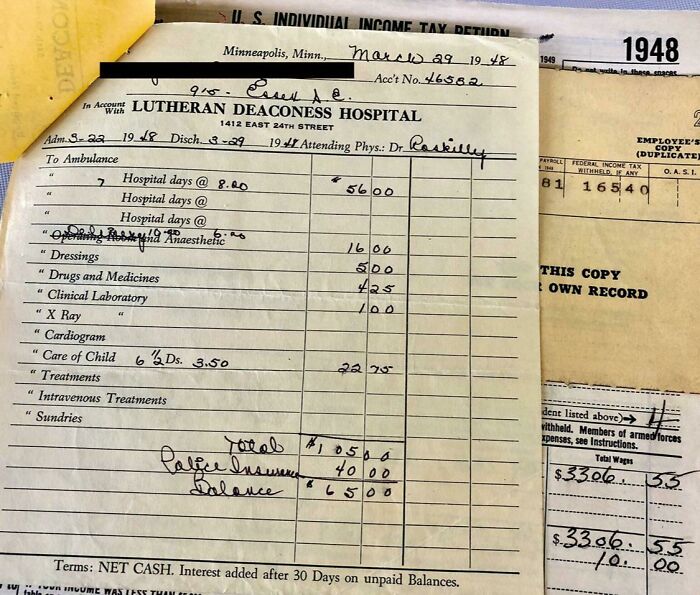 DEACON
U. S. INDIVIDUAL INCOME TAX RETURN
1949
1948
Do not write in these spaces
Minneapolis, Minn., March 29 1948
Acc't No. 46582
915- Essex S.E.
In Account With LUTHERAN DEACONESS HOSPITAL
1412 EAST 24TH STREET
Adm. 3-22 1948 Disch. 3-29 1948 Attending Phys.: Dr.
To Ambulance
" 7 Hospital days @ 8.00 $56 00
" Hospital days @
" Hospital days @
Delivery 10.00 6.00
" Operating Room and Anaesthetic 16 00
" Dressings 5 00
" Drugs and Medicines 4 25
" Clinical Laboratory 1 00
" X Ray "
" Cardiogram
" Care of Child 6 1/2 Ds. 3.50 22 75
" Treatments
" Intravenous Treatments
" Sundries
Total $105 00
Police Insurance 40 00
Balance $65 00
Terms: NET CASH. Interest added after 30 Days on unpaid Balances.
EMPLOYEE'S
COPY
(DUPLICATE)
PAYROLL
FEDERAL INCOME TAX
WITHHELD, IF ANY
O. A. S. I.
81 165 40
THIS COPY
OWN RECORD
dent listed above) → 4
withheld. Members of armed forces
expenses, see Instructions.
Total Wages
$3306. 55
$3306. 55
10. 00
YOUR INCOME WAS LESS THAN